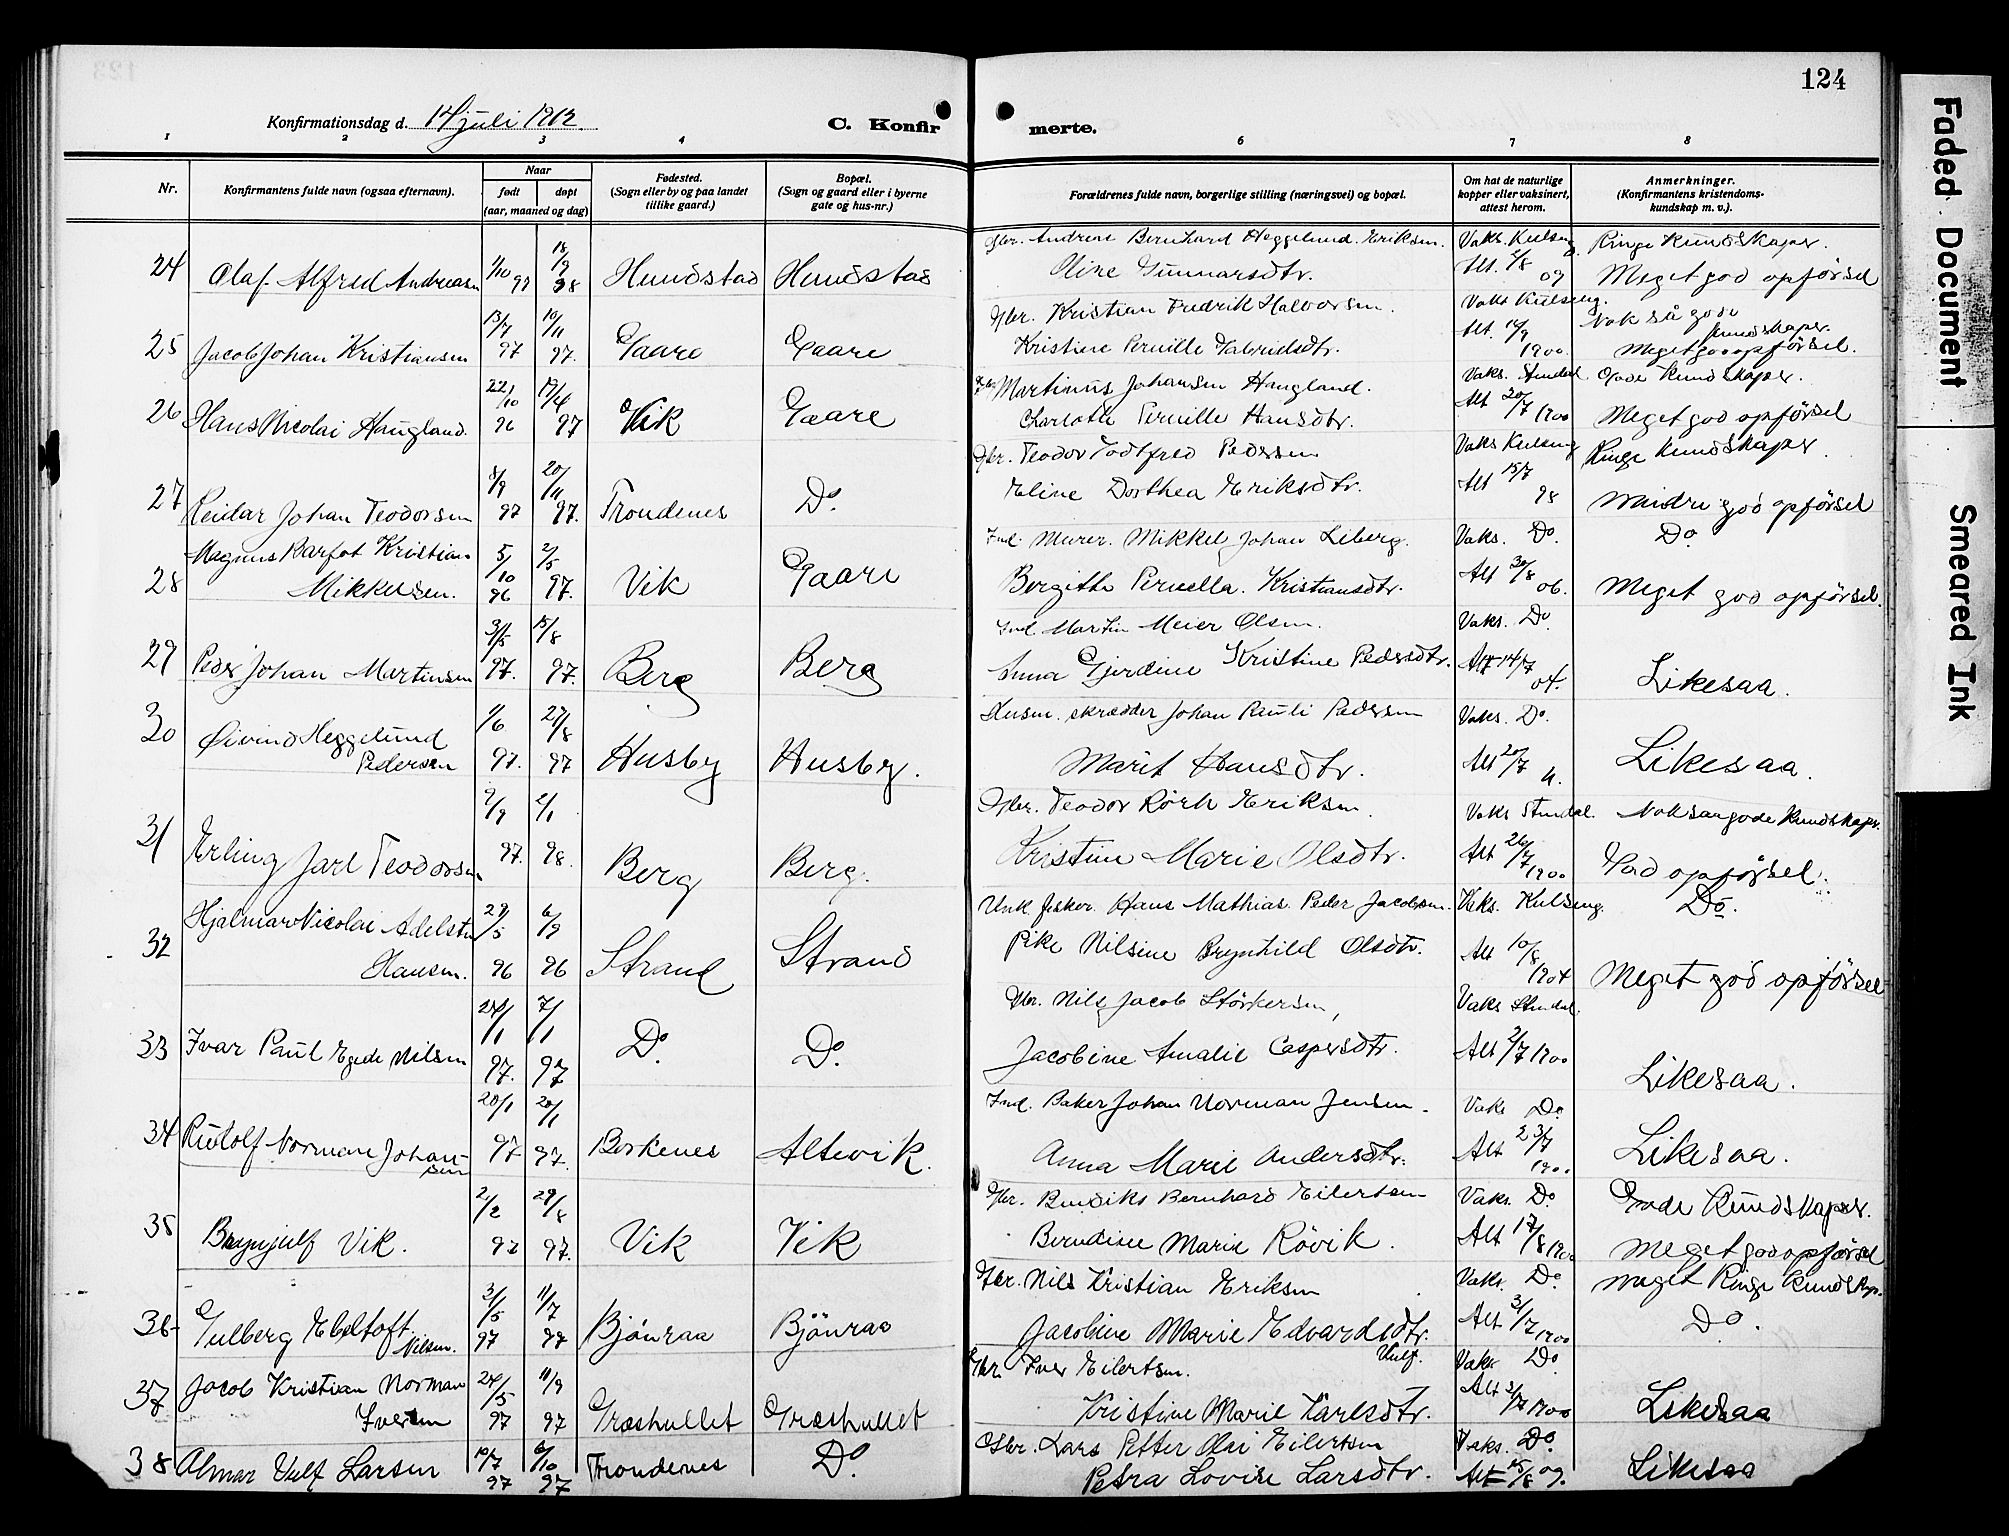 124
Konfirmationsdag d. 14 juli 1912.
C. Konfirmerte.
1 2 3 4 6 7 8
Nr.
Konfirmantens fulde navn (ogsaa efternavn).
Naar
født døpt
(aar, maaned og dag)
Fødested.
(Sogn eller by og paa landet
tillike gaard.)
Bopæl.
(Sogn og gaard eller i byerne
gate og hus-nr.)
Forældrenes fulde navn, borgerlige stilling (næringsvei) og bopæl.
Om hat de naturlige
kopper eller vaksinert,
attest herom.
Anmerkninger.
(Konfirmantens kristendoms-
kundskap m. v.).
24 Olaf Alfred Andreasen 1/10 97 18/9 98 Hundstad Hundstad
Gbr. Andreas Bernhard Heggelund Eriksen. Vaks. Kulseng Ringe Kundskaper.
Oline Gunnarsdtr. Att. 09 Meget god opførsel
25 Jacob Johan Kristiansen 13/7 97 10/11 97. Gaare Gaare
Gbr. Kristian Fredrik Halvorsen. Vaks Kulseng. Nok så gode kundskaper.
Kristine Pernille Gabrielsdtr. Att. 14/9 1900. Meget god opførsel.
26 Hans Nicolai Haugland. 22/10 96 19/4 97 Vik Gaare
Gbr. Martinus Johansen Haugland. Vaks. Stendal Gode Kundskaper.
Charlotte Pernille Hansdtr. Att 20/7 1900 Meget god opførsel
27 Reidar Johan Teodorsen 8/9 97 20/11 97. Trondenes Do.
Gbr. Teodor Godtfred Pedersen Vaks Kulseng Ringe Kundskaper.
Eline Dorthea Eriksdtr. Att 15/7 98 Mindre god opførsel
28 Magnus Barfot Kristian Mikkelsen. 5/10 96 2/5 97. Vik Gaare
Ind. Murer. Mikkel Johan Liberg. Vaks. Do. Do
Bergitte Pernella Kristiansdtr. Att 30/8 06. Meget god opførsel.
29 Peder Johan Martinsen 3/5 97. 15/8 97. Berg Berg
Ind. Martin Meier Olsen. Vaks. Do.
Anna Gjerdine Kristine Pedersdtr. Att 14/7 04. Likesaa.
30 Øivind Heggelund Pedersen 1/6 97. 27/8 97 Husby Husby.
Husm. skrædder Johan Pauli Pedersen Vaks. Do.
Marit Hansdtr. Att 20/7 11. Likesaa.
31 Erling Jarl Teodorsen 9/9 97. 2/1 98. Berg Berg.
Gbr. Teodor Rörk Eriksen. Vaks Stendal. Noksaagode Kundskaper.
Kristine Marie Olsdtr. Att 26/7 1900 God opførsel.
32 Hjalmar Nicolai Adelsten Hansen. 29/5 96 6/9 96 Strand Strand
Unk. fisker. Hans Mathias Peder Jacobsen. Vaks. Kulseng. Do.
Pike Nilsine Brynhild Olsdtr. Att 10/8 1904 Meget god opførsel
33 Ivar Paul Egede Nilsen 24/1 97. 7/1 97 Do. Do.
Gbr. Nils Jacob Störkersen, Vaks Stendal.
Jacobine Amalie Caspersdtr. Att 2/7 1900 Likesaa.
34 Rudolf Norman Johansen 20/1 97 20/1 97. Borkenes Altevik.
Ind. Baker Johan Norman Jensen. Vaks Do.
Anna Marie Andersdtr. Att 23/7 1900 Likesaa.
35 Brynjulf Vik. 2/2 97 29/8 97. Vik Vik
Gbr. Bendiks Bernhard Eilertsen Vaks. Do. Gode Kundskaper.
Berndine Marie Rövik. Att 17/8 1900 Meget god opførsel
36 Gulberg Ebeltoft Nilsen. 3/5 97 11/7 97 Bjönraa Bjönraa
Gbr. Nils Kristian Eriksen Vaks. Do. meget Ringe Kundskap.
Jacobine Marie Edvardsdtr. Att 3/7 1900 Do.
37 Jacob Kristian Norman Iversen 24/5 97 11/9 97 Græshullet Græshullet
Gbr. Iver Eilertsen. Vulf. Vaks Do
Kristine Marie Karlsdtr. Att 2/7 1900 Likesaa
38 Almar Vulf Larsen 19/7 97 6/10 97 Trondenes Do.
Gbr. Lars Petter Olai Eilertsen Vaks. Do.
Petra Lovise Larsdtr. Att 15/8 09. Likesaa
Faded Document
Smeared Ink